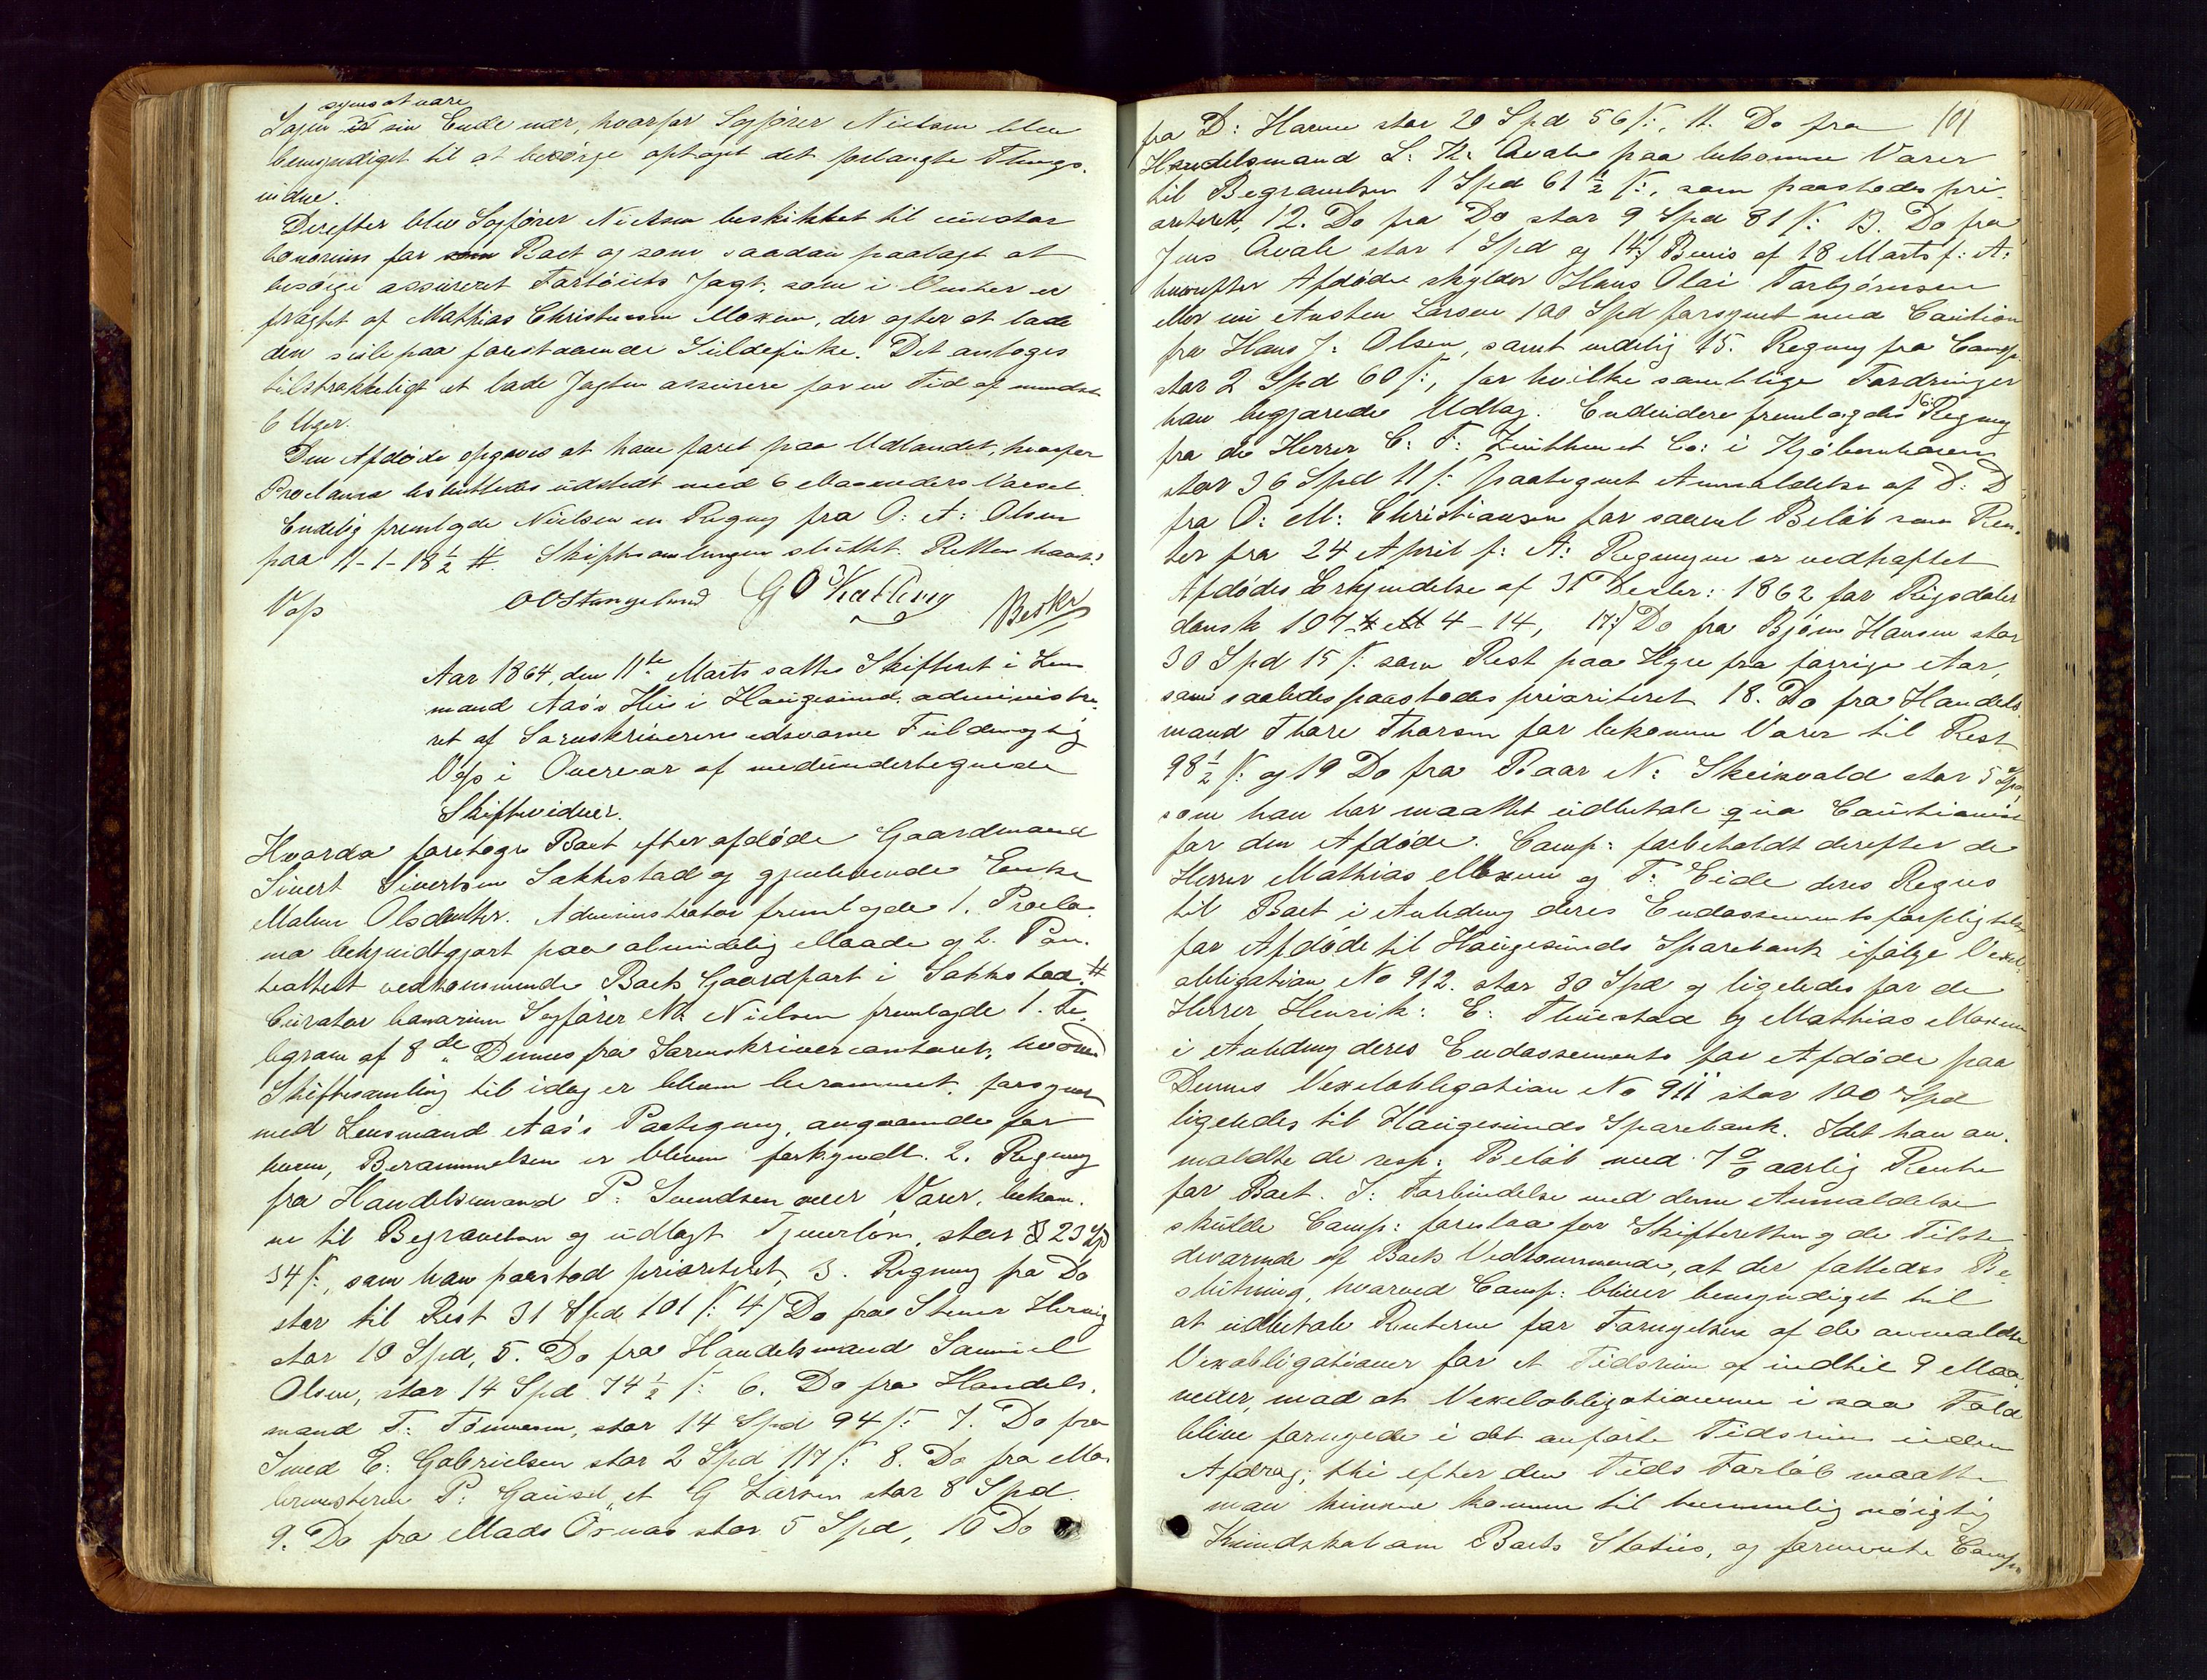 synes at være
Sagen er sin Ende nær, hvorfor Sagfører Nielsen blev
bemyndiget til at besørge optaget det forlangte Things-
vidne.
Derefter blev Sagfører Nielsen beskikket til curator
bonorum for som Boet og som saadan paalagt at
besørge assureret Fartøiets Jagt, som i Vinter er
fragtet af Mathias Christensen Moxen, der agter at lade
den seile paa forestaaende Sildefiske. Det antoges
tilstrækkeligt at lade Jagten assurere for en Tid af mindst
6 Uger.
Den Afdøde opgaves at have faret paa Udlandet, hvorfor
Proclama besluttedes udstedt med 6 Maaneders Varsel.
Endelig fremlagde Nielsen en Regning fra O: A: Olsen
paa 11-1-18½ #. Skiftesamlingen sluttet. Retten hævet:
Vogs OOStangeland GOKallevig Beskr
Aar 1864, den 11te Marts sattes Skifteret i Lens-
mand Aas's Hus i Haugesund, administre-
ret af Sorenskriverens edsvorne Fuldmægtig
Vogs i Overvær af medundertegnede
Skiftevidner.
Hvorda foretoges Boet efter afdøde Gaardmand
Sivert Sivertsen Sakkestad og gjenlevende Enke
Malene Olsdatter. Administrator fremlagde 1. Procla-
ma bekjendtgjort paa almindelig Maade og 2. Pan-
teattest vedkommende Boets Gaardpart i Sakkestad. #
Curator bonorum Sagfører N: Nielsen fremlagde 1. Te-
legram af 8de Dennes fra Sorenskrivercontoret, hvorved
Skiftesamling til idag er bleven berammet, forsynet
med Lensmand Aas's Paategning, angaaende for
hvem, Berammelsen er bleven forkyndt. 2. Regning
fra Handelsmand P: Svendsen over Varer, bekom-
ne til Begravelsen og udlagt Tjenerløn, stor 23 Spd
34 ß:, som han paastod prioriteret, 3. Regning fra Do
stor til Rest 31 Spd 101 ß: 4) Do fra Stener Hervig
stor 10 Spd, 5. Do fra Handelsmand Samuel
Olsen, stor 14 Spd 74½ ß: 6. Do fra Handels-
mand T: Tønnesen, stor 14 Spd 94 ß: 7. Do fra
Smed E: Gabrielsen stor 2 Spd 117 ß: 8. Do fra Ma-
lermesterne P: Gausel et G Larsen stor 8 Spd
9. Do fra Mads Øsnæs stor 5 Spd, 10 Do
101
fra D: Harme stor 20 Spd 56 ß:, 11. Do fra
Handelsmand L: K: Qvale paa bekomne Varer
til Begravelsen 1 Spd 61½ ß:, som paastodes pri-
oriteret, 12. Do fra Do stor 9 Spd 81 ß: 13. Do fra
Jens Qvale stor 1 Spd og 14) Bevis af 18 Marts f: A:
hvorefter Afdøde skylder Hans Olai Torbjørnsen
eller nu Austen Larsen 100 Spd forsynet med Caution
fra Hans J: Olsen, samt endelig 15. Regning fra Comp:
stor 2 Spd 60 ß:, for hvilke samtlige Fordringer
han begjærede Udlæg. Endvidere fremlagdes 16: Regning
fra de Herrer C: F: Zeuthen et Co: i Kjøbenhavn
stor 36 Spd 11 ß: paategnet Anmældelse af D: D
fra O: M: Christiansen for saavel Beløb som Ren-
ter fra 24 April f: A: Regningen er vedhæftet
Afdødes Erkjendelse af 31 Decbr: 1862 for Rigsdaler
dansk 107 # 4-14, 17) Do fra Bjørn Hansen stor
30 Spd 15 ß: som Rest paa Hyre fra forrige Aar,
som saaledes paastodes prioriteret 18. Do fra Handels-
mand Thore Thorsen for bekomne Varer til Rest
98½ ß: og 19 Do fra Baar N: Skeisvold stor 5 Spd
som han har maattet udbetale qua Cautionist
for den Afdøde. Comp: forbeholdt derefter de
Herrer Mathias Moxen og T: Eide deres Regres
til Boet i Anledning deres Endossementsforpligtelse
for Afdøde til Haugesunds Sparebank ifølge Vexel-
obligation No 912. stor 30 Spd og ligeledes for de
Herrer Henrik: E: Thuestad og Mathias Moxen
i Anledning deres Endossements for Afdøde paa
Dennes Vexelobligation No 911 stor 100 Spd
ligeledes til Haugesunds Sparebank. Idet han an-
meldte de resp: Beløb med 7% aarlig Rente
for Boet. I: Forbindelse med denne Anmældelse
skulde Comp: foreslaa for Skifteretten og de Tilste-
deværende af Boets Vedkommende, at der fattedes Be-
slutning, hvorved Comp: bliver bemyndiget til
at udbetale Renterne for Fornyelsen af de anmeldte
Vexobligationer for et Tidsrum af indtil 9 Maa-
neder, mod at Vexelobligationerne i saa Fald
blive fornyede i det anførte Tidsrum uden
Afdrag; thi efter den Tids Forløb maatte
man kunne komme til temmelig nøiagtig
Kundskab om Boets Status, og formente Comp: